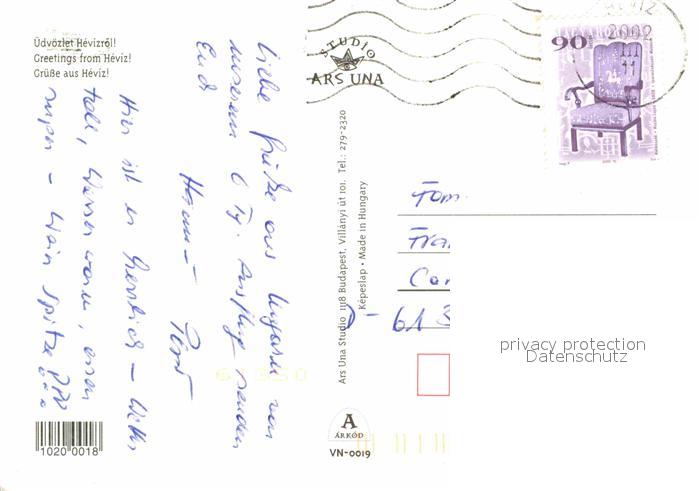 Üdvözlet Hévízről!
Greetings from Hévíz!
Grüße aus Hévíz!
Liebe Grüße aus Ungarn von
unserem 6 Tg. Ausflug senden
Euch
Hier ist es herrlich –
toll, Wasser warm, essen
super – Wein Spitze!!!
1020 0018
STUDIO
ARS UNA
Ars Una Studio 1118 Budapest, Villányi út 101. Tel.: 279-2320
Képeslap • Made in Hungary
2002
90
Fom
Fra
Con
D- 613
privacy protection
Datenschutz
A
ÁRKÓD
VN-0019